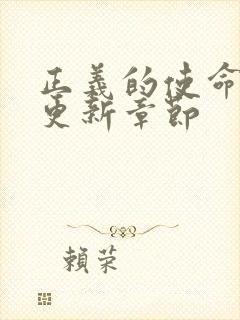 正義的使命
更新章節
賴荣